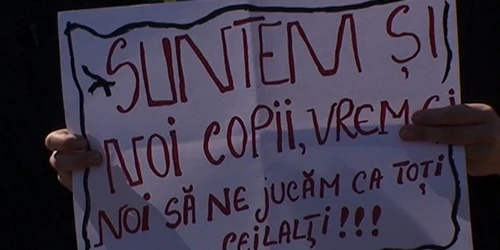 SUNTEM ȘI
NOI COPII, VREM ȘI
NOI SĂ NE JUCĂM CA TOȚI
CEILALȚI!!!